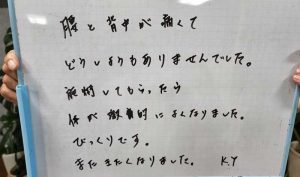 腰と背中が痛くて
どうしようもありませんでした。
施術してもらったら
体が徹底的によくなりました。
びっくりです。
またきたくなりました。 K.Y